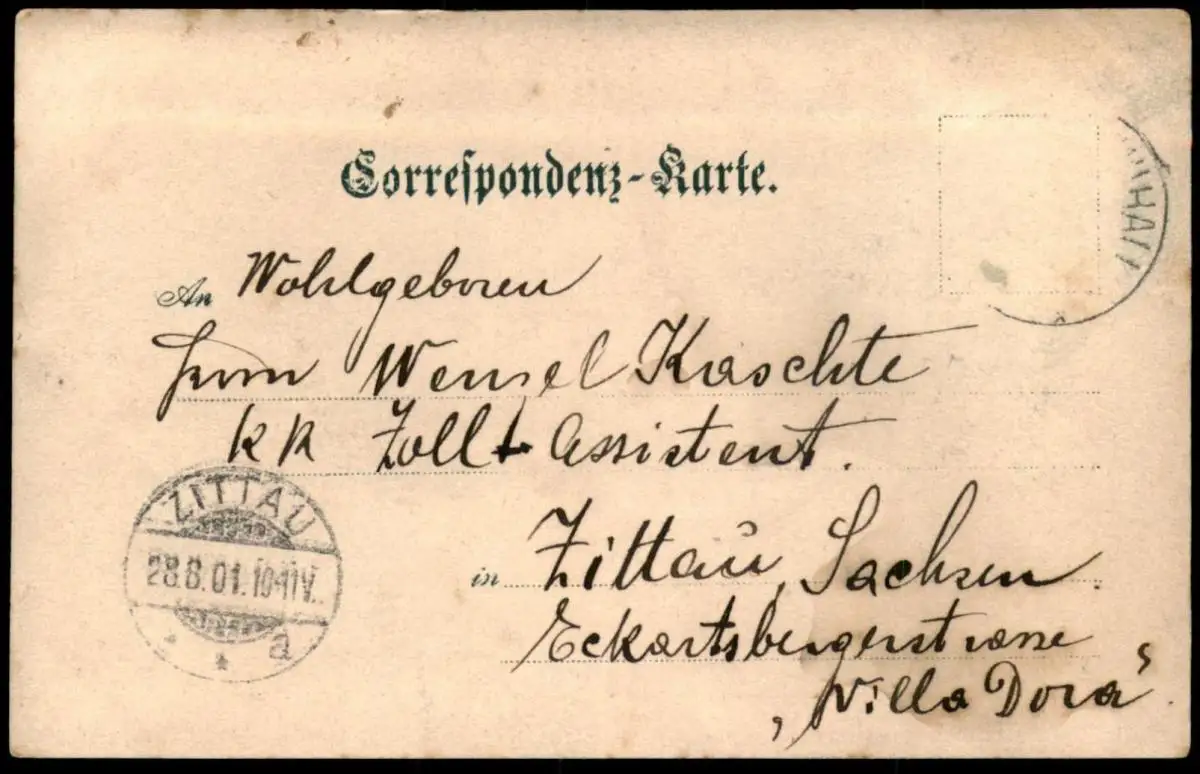 Correspondenz-Karte.
An Wohlgeboren
Herrn Wenzel Kaschte
KK Zollt Assistent.
ZITTAU
28.8.01. 10-11V.
* * a
in Zittau, Sachsen.
Eckartsbergerstrasse
"Villa Dora"